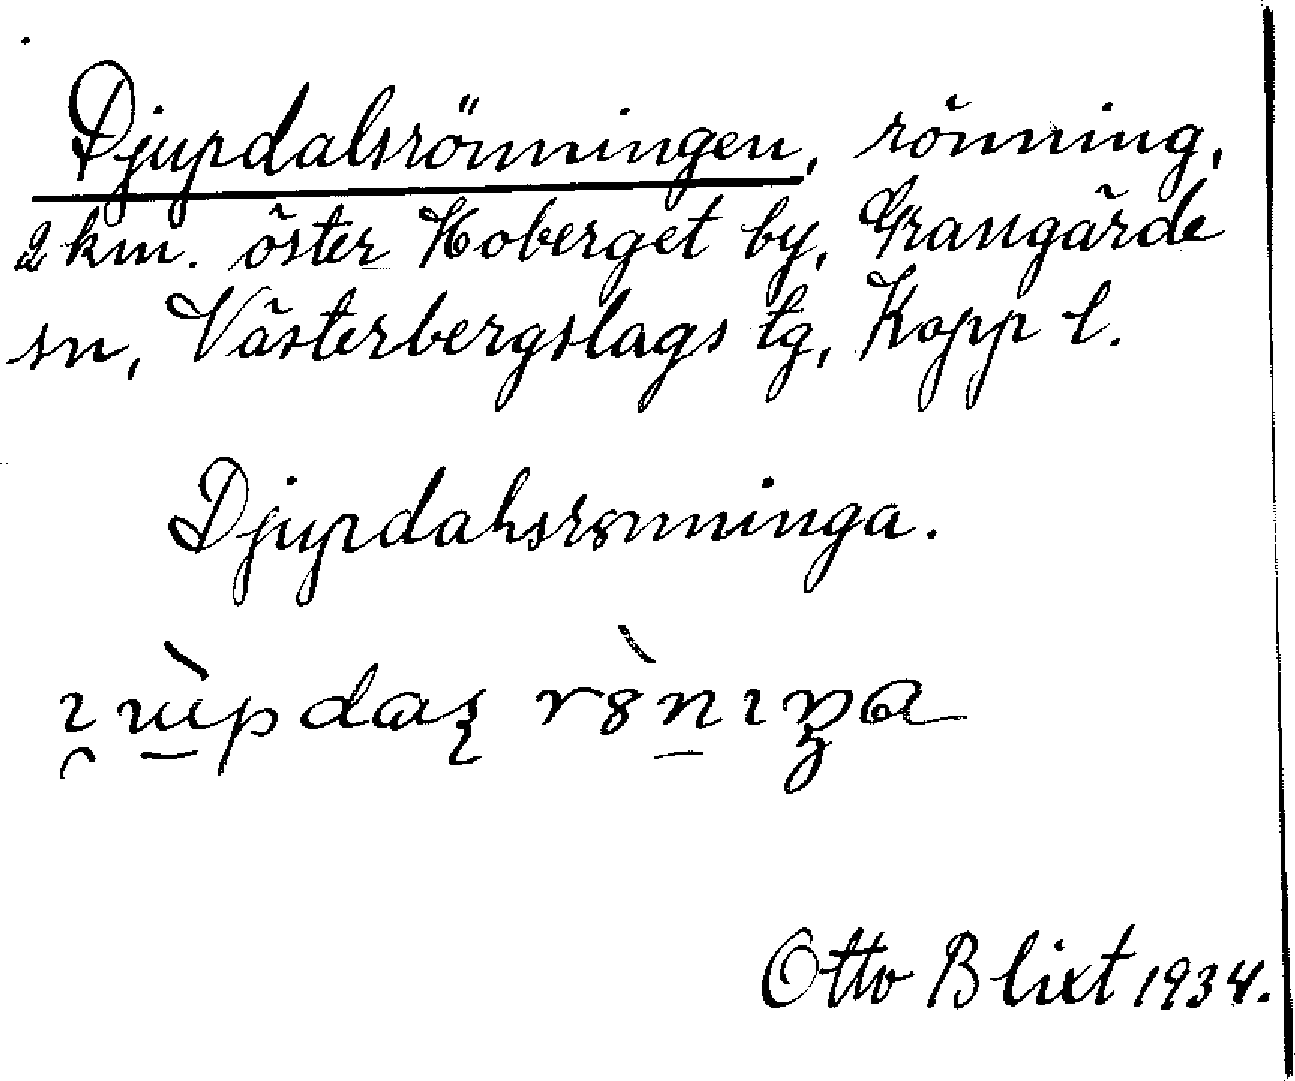 Djupdalsrönningen, rönning,
2 km. öster Hoberget by, Grangärde
sn, Västerbergslags tg, Kopp l.
Djupdahsrønninga.
Otto Blixt 1934.